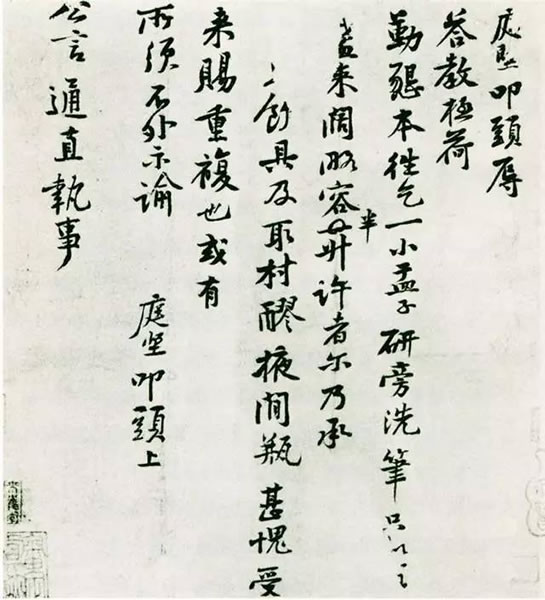 庭堅叩頭辱
答教極荷
勤懇本往乞一小盂子研旁洗筆只以
盞来闊略容半升許者尔乃承
飭具及取村醪掖間瓶甚愧受
来賜重複也或有
所須不外示諭 庭坚叩頭上
公言通直執事